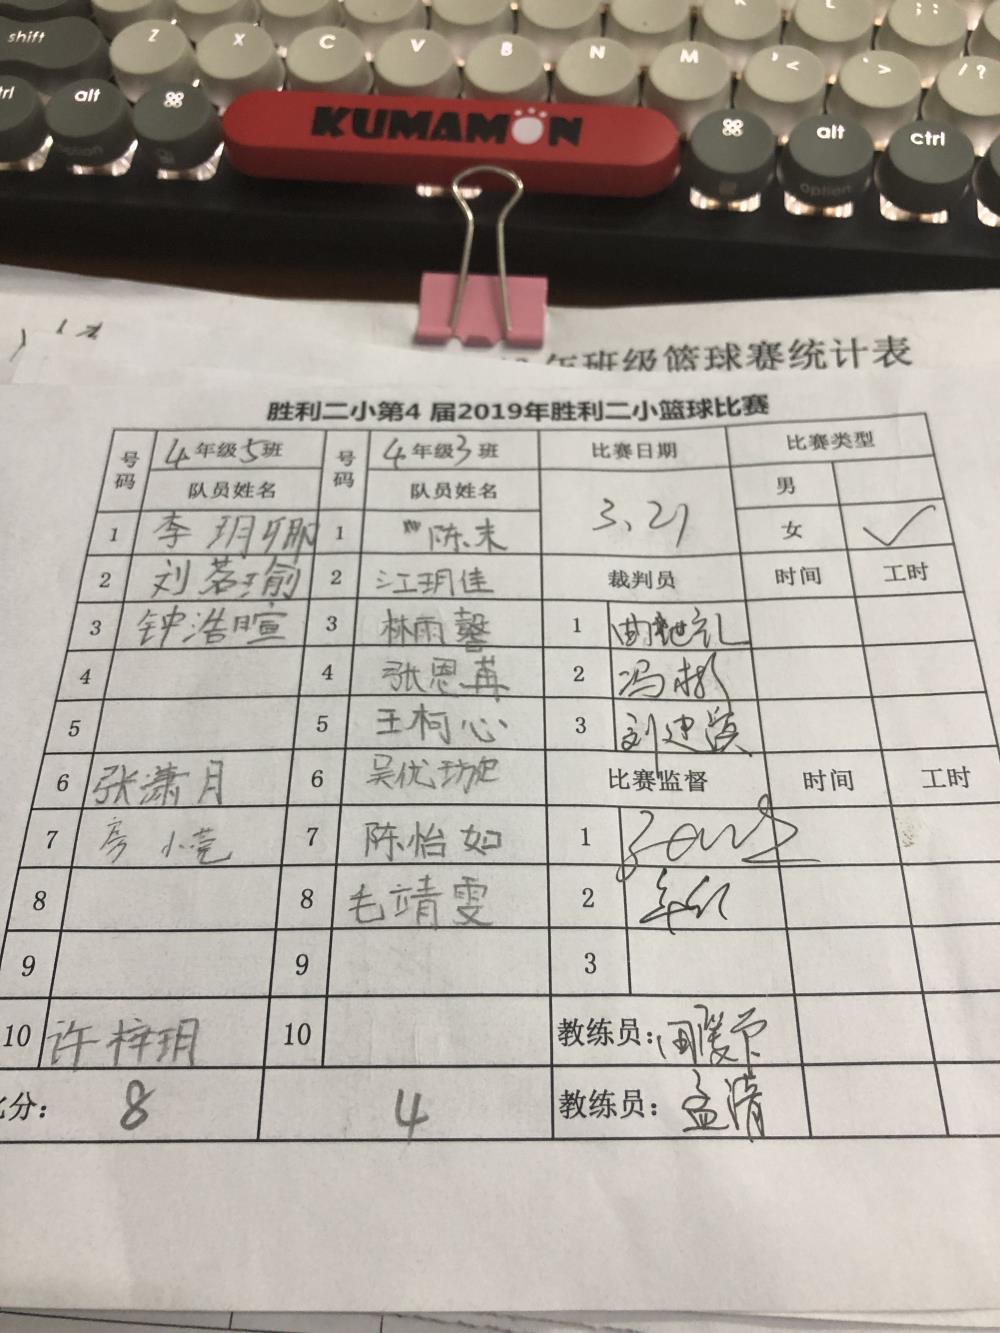 shift Z X C V B N M , < . > / ?
alt ⌘ ⌘ alt ctrl
option option
KUMAMON
年班级篮球赛统计表
胜利二小第4 届2019年胜利二小篮球比赛
号码 4年级5班 号码 4年级3班 比赛日期 比赛类型
队员姓名 队员姓名 3.21 男
1 李玥卿 1 陈末 女 ✓
2 刘茗瑜 2 江玥佳 裁判员 时间 工时
3 钟浩暄 3 林雨馨 1
4 4 张恩苒 2 冯彬
5 5 王柯心 3 刘建
6 张潇月 6 吴优 比赛监督 时间 工时
7 小莞 7 陈怡如 1
8 8 毛靖雯 2
9 9 3
10 许梓玥 10 教练员:
分: 8 4 教练员: 孟清